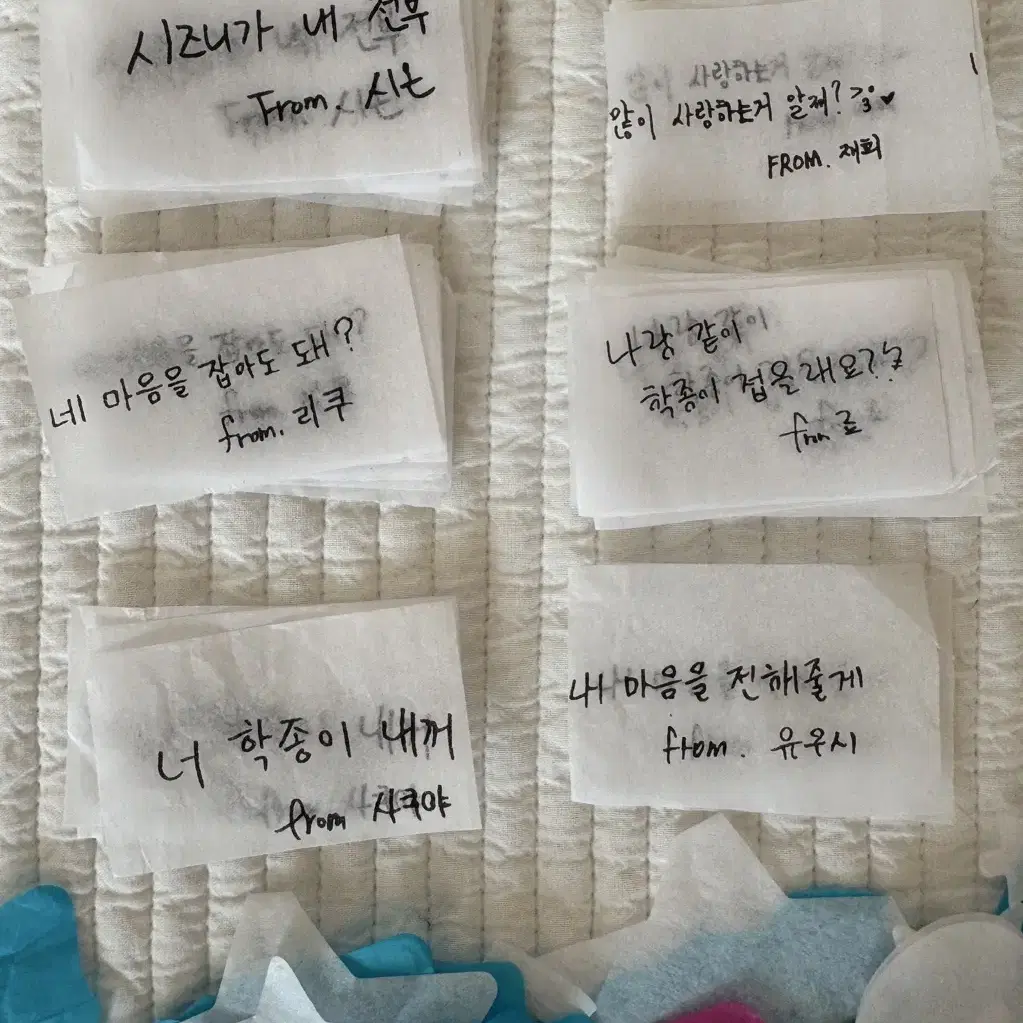 시즈니가 내 전부
From. 시온
많이 사랑하는거 알제? >3•♥
FROM. 재희
네 마음을 잡아도 돼?
from. 리쿠
나랑 같이
학종이 접을래요??
from 료
너 학종이 내꺼
from 사쿠야
내 마음을 전해줄게
from. 유우시